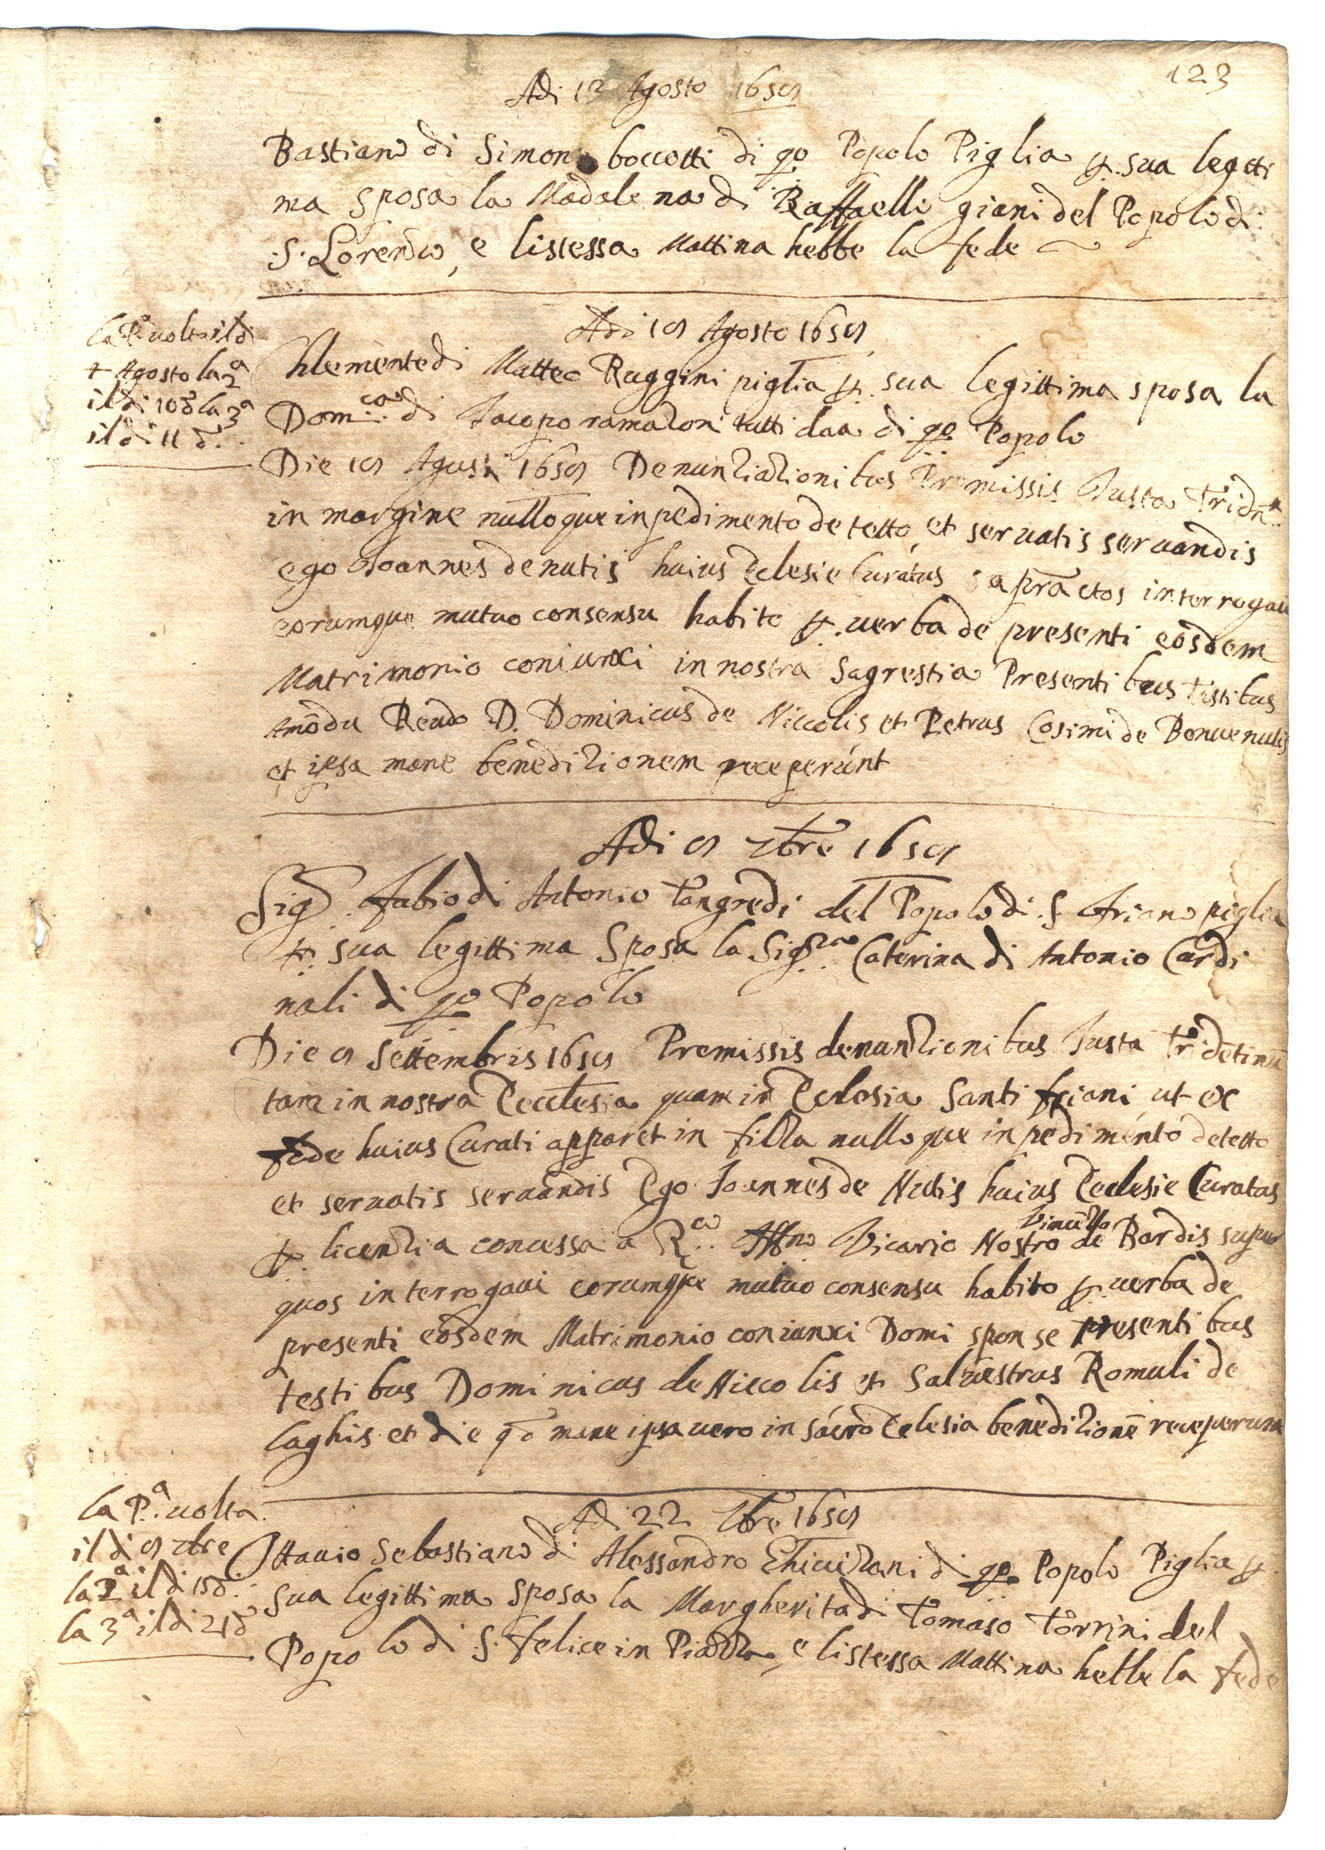 123
Adi 12 Agosto 1659
Bastiano di Simone boccotti di qo Popolo Piglia p. sua legitti
ma sposa la Madalena di Raffaello giani del Popolo di
.S. Lorenzo, e listessa Mattina hebbe la fede
la Pa uolta il di
4 Agosto la 2a
il di 10 do la 3a
il di 11 do.
Adi 19 Agosto 1659
Clemente di Matteo Ruggini piglia p. sua legittima sposa la
Domca. di Jacopo ramazoni tutti dua di qo Popolo
Die 19 Agusti 1659 Denunziazionibus Premissis Justa Tridn.
in margine nulloque inpedimento detetto, et seruatis seruandis
ego Joannes de nutis huius Eclesie Curatus sapractos interrogaui
eorumque mutuo consensu habito p. uerba de presenti eosdem
Matrimonio coniunxi in nostra Sagrestia Presentibus Tistibus
Amodu Reudo D. Dominicus de Niccolis et Petrus Cosimi de Bonuenutis
et ipsa mane benedizionem receperunt
Adi 9 7bre 1659
Sigr. Fabio di Antonio Tangredi del Popolo di .S. Friano piglia
p. sua legittima Sposa la Sigra. Caterina di Antonio Cardi
nali di qo Popolo
Die 9 Settembris 1659 Premissis denunzionibus Justa Tridetinu
tam in nostra Ecclesia quam in Eclesia Santi friani ut ex
fede huius Curati apparet in filza nulloque inpedimento detetto
et seruatis seruandis Ego Joannes de Nutis huius Ecclesie Curatus
p. licenzia concessa a R. Vicario Nostro de Bardis supra
quos interrogaui eorumque mutuo consensu habito p. uerba de
presenti eosdem Matrimonio coniunxi Domi sponse presentibus
testibus Dominicus de Niccolis et Saluestrus Romuli de
Laghis et die qo mane ipsa uero in sacro Eclesia benedizione receperunt
la Pa. uolta
il di 9 7bre
la 2a il di 15 do.
la 3a il di 21 do
Adi 22 7bre 1659
Ottauio Sebastiano di Alessandro Chiuizani di qo Popolo Piglia p.
sua legittima sposa la Margherita di Tomaso Torrini del
Popolo di .S. Felice in Piazza, e listessa Mattina hebbe la fede